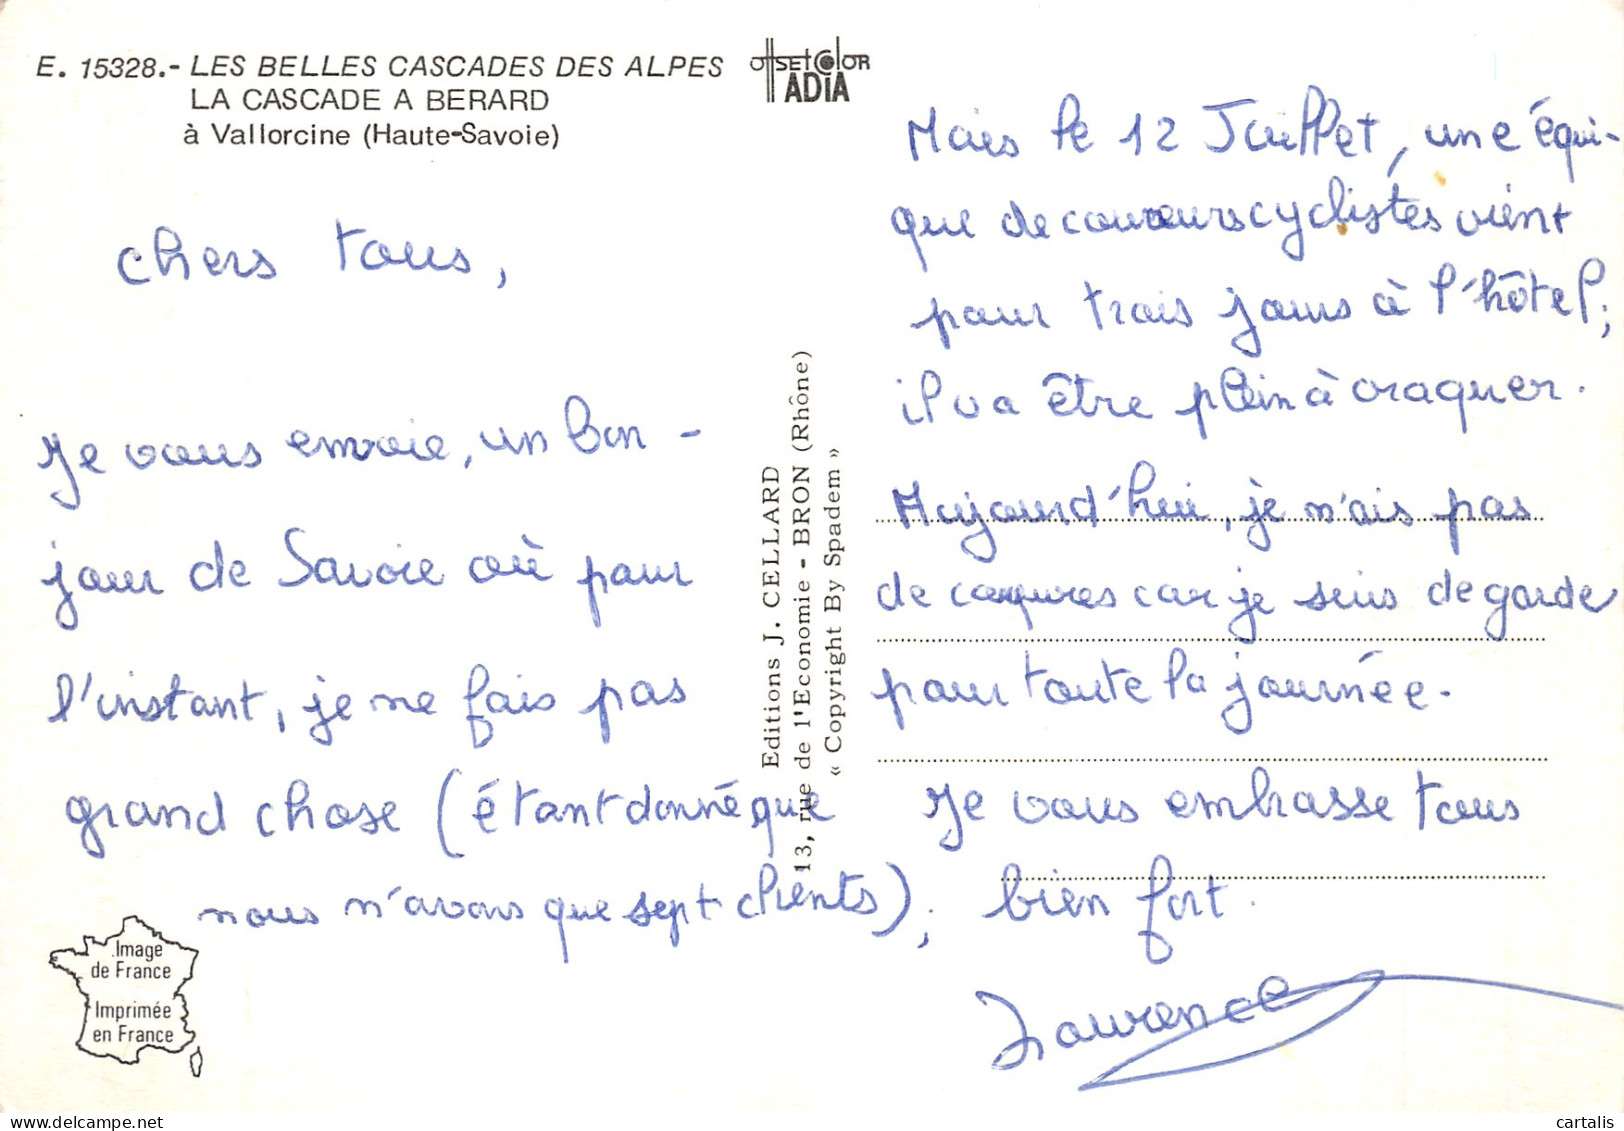 E. 15328.- LES BELLES CASCADES DES ALPES
LA CASCADE A BERARD
à Vallorcine (Haute-Savoie)
OFFSET COLOR
ADIA
chers tous,
Je vous envoie, un bon-
jour de Savoie où pour
l'instant, je ne fais pas
grand chose (étant donné que
nous n'avons que sept clients),
Image
de France
Imprimée
en France
Editions J. CELLARD
13, rue de l'Economie - BRON (Rhône)
« Copyright By Spadem »
Mais le 12 Juillet, une équi-
que de coureurs cyclistes vient
pour trois jours à l'hôtel;
il va être plein à craquer.
Aujourd'hui, je n'ais pas
de coupures car je suis de garde
pour toute la journée.
Je vous embrasse tous
bien fort.
Laurence
delcampe.net
cartalis